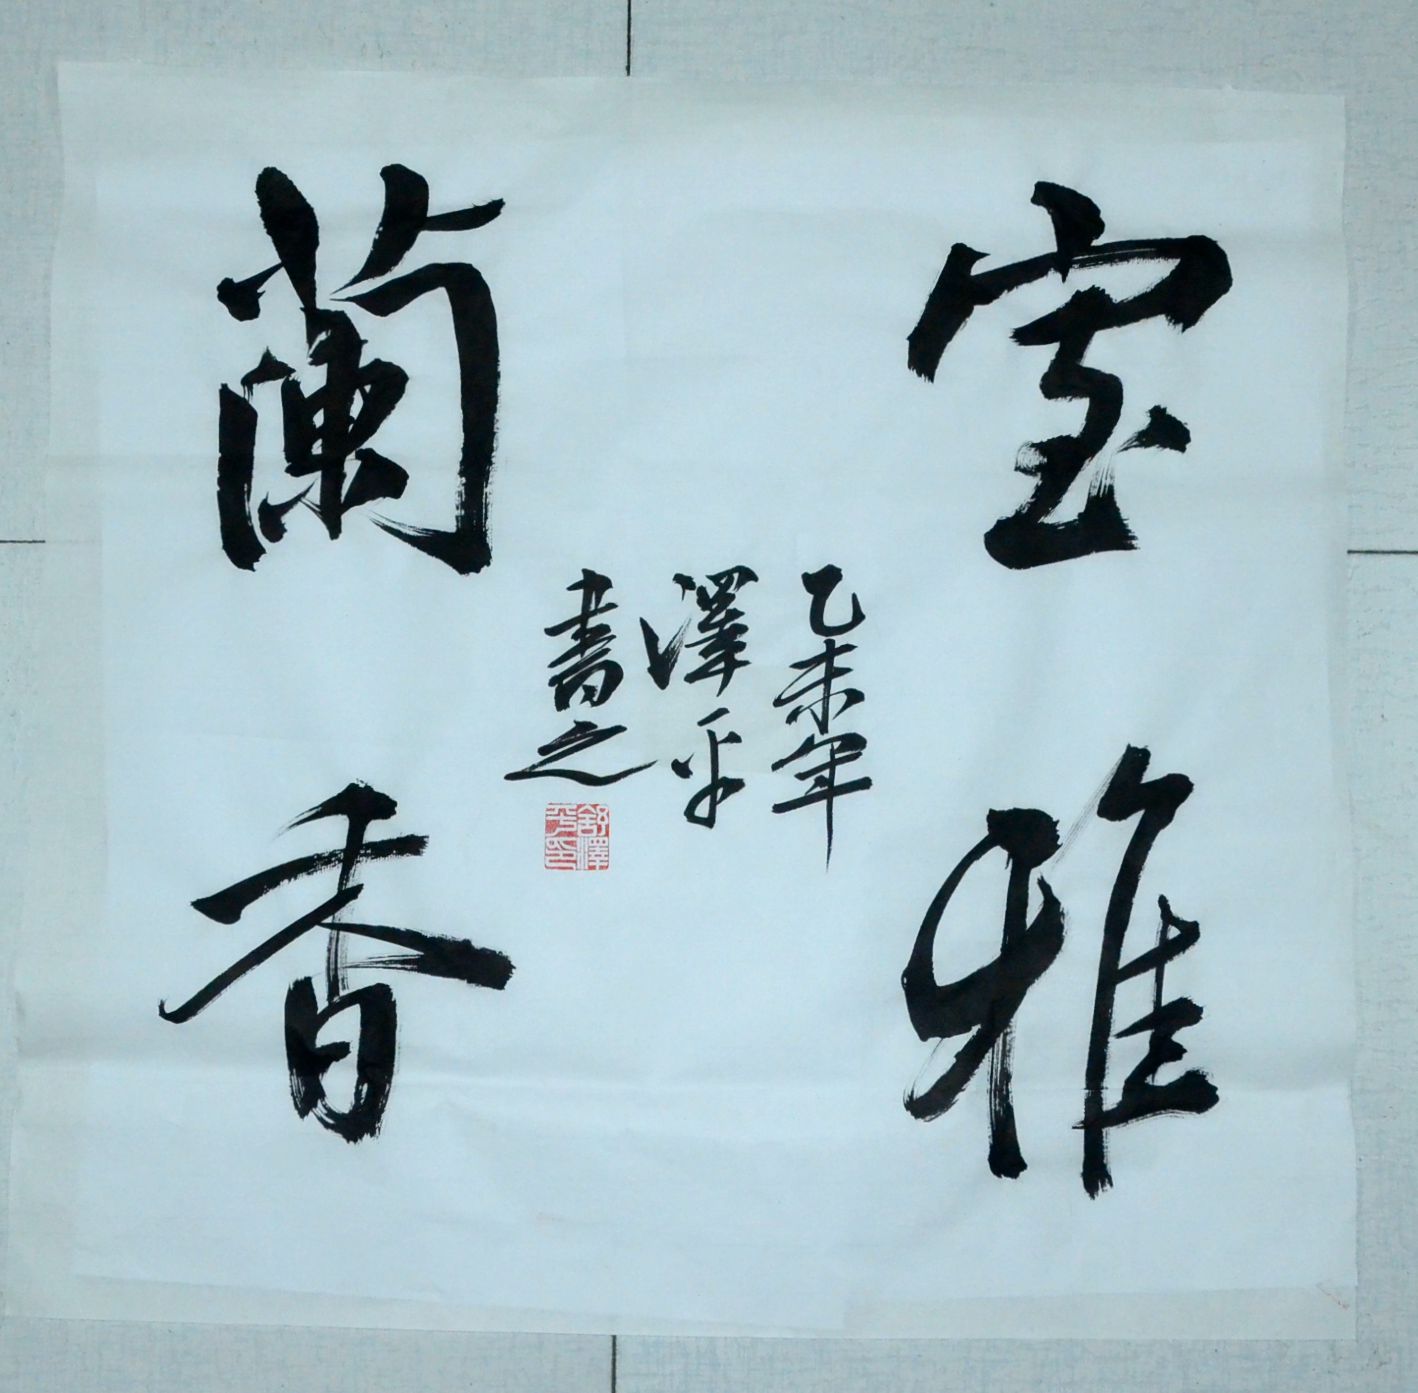 室雅
蘭香
乙未年
澤平
書之
舒澤
平印